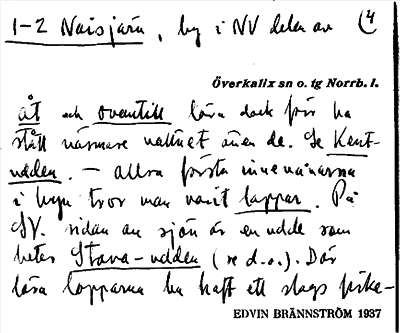 1-2 Naisjärv, by i NV delen av (4
Överkalix sn o. tg Norrb. l.
åt och oventill lära dock förr ha
stått närmare vattnet även de. Se Kent-
udden. – Allra första innevånarna
i byn tror man varit lappar. På
SV. sidan av sjön är en udde som
heter Stava-udden (se d.o.). Där
lära lapparna ha haft ett slags fiske-
EDVIN BRÄNNSTRÖM 1937